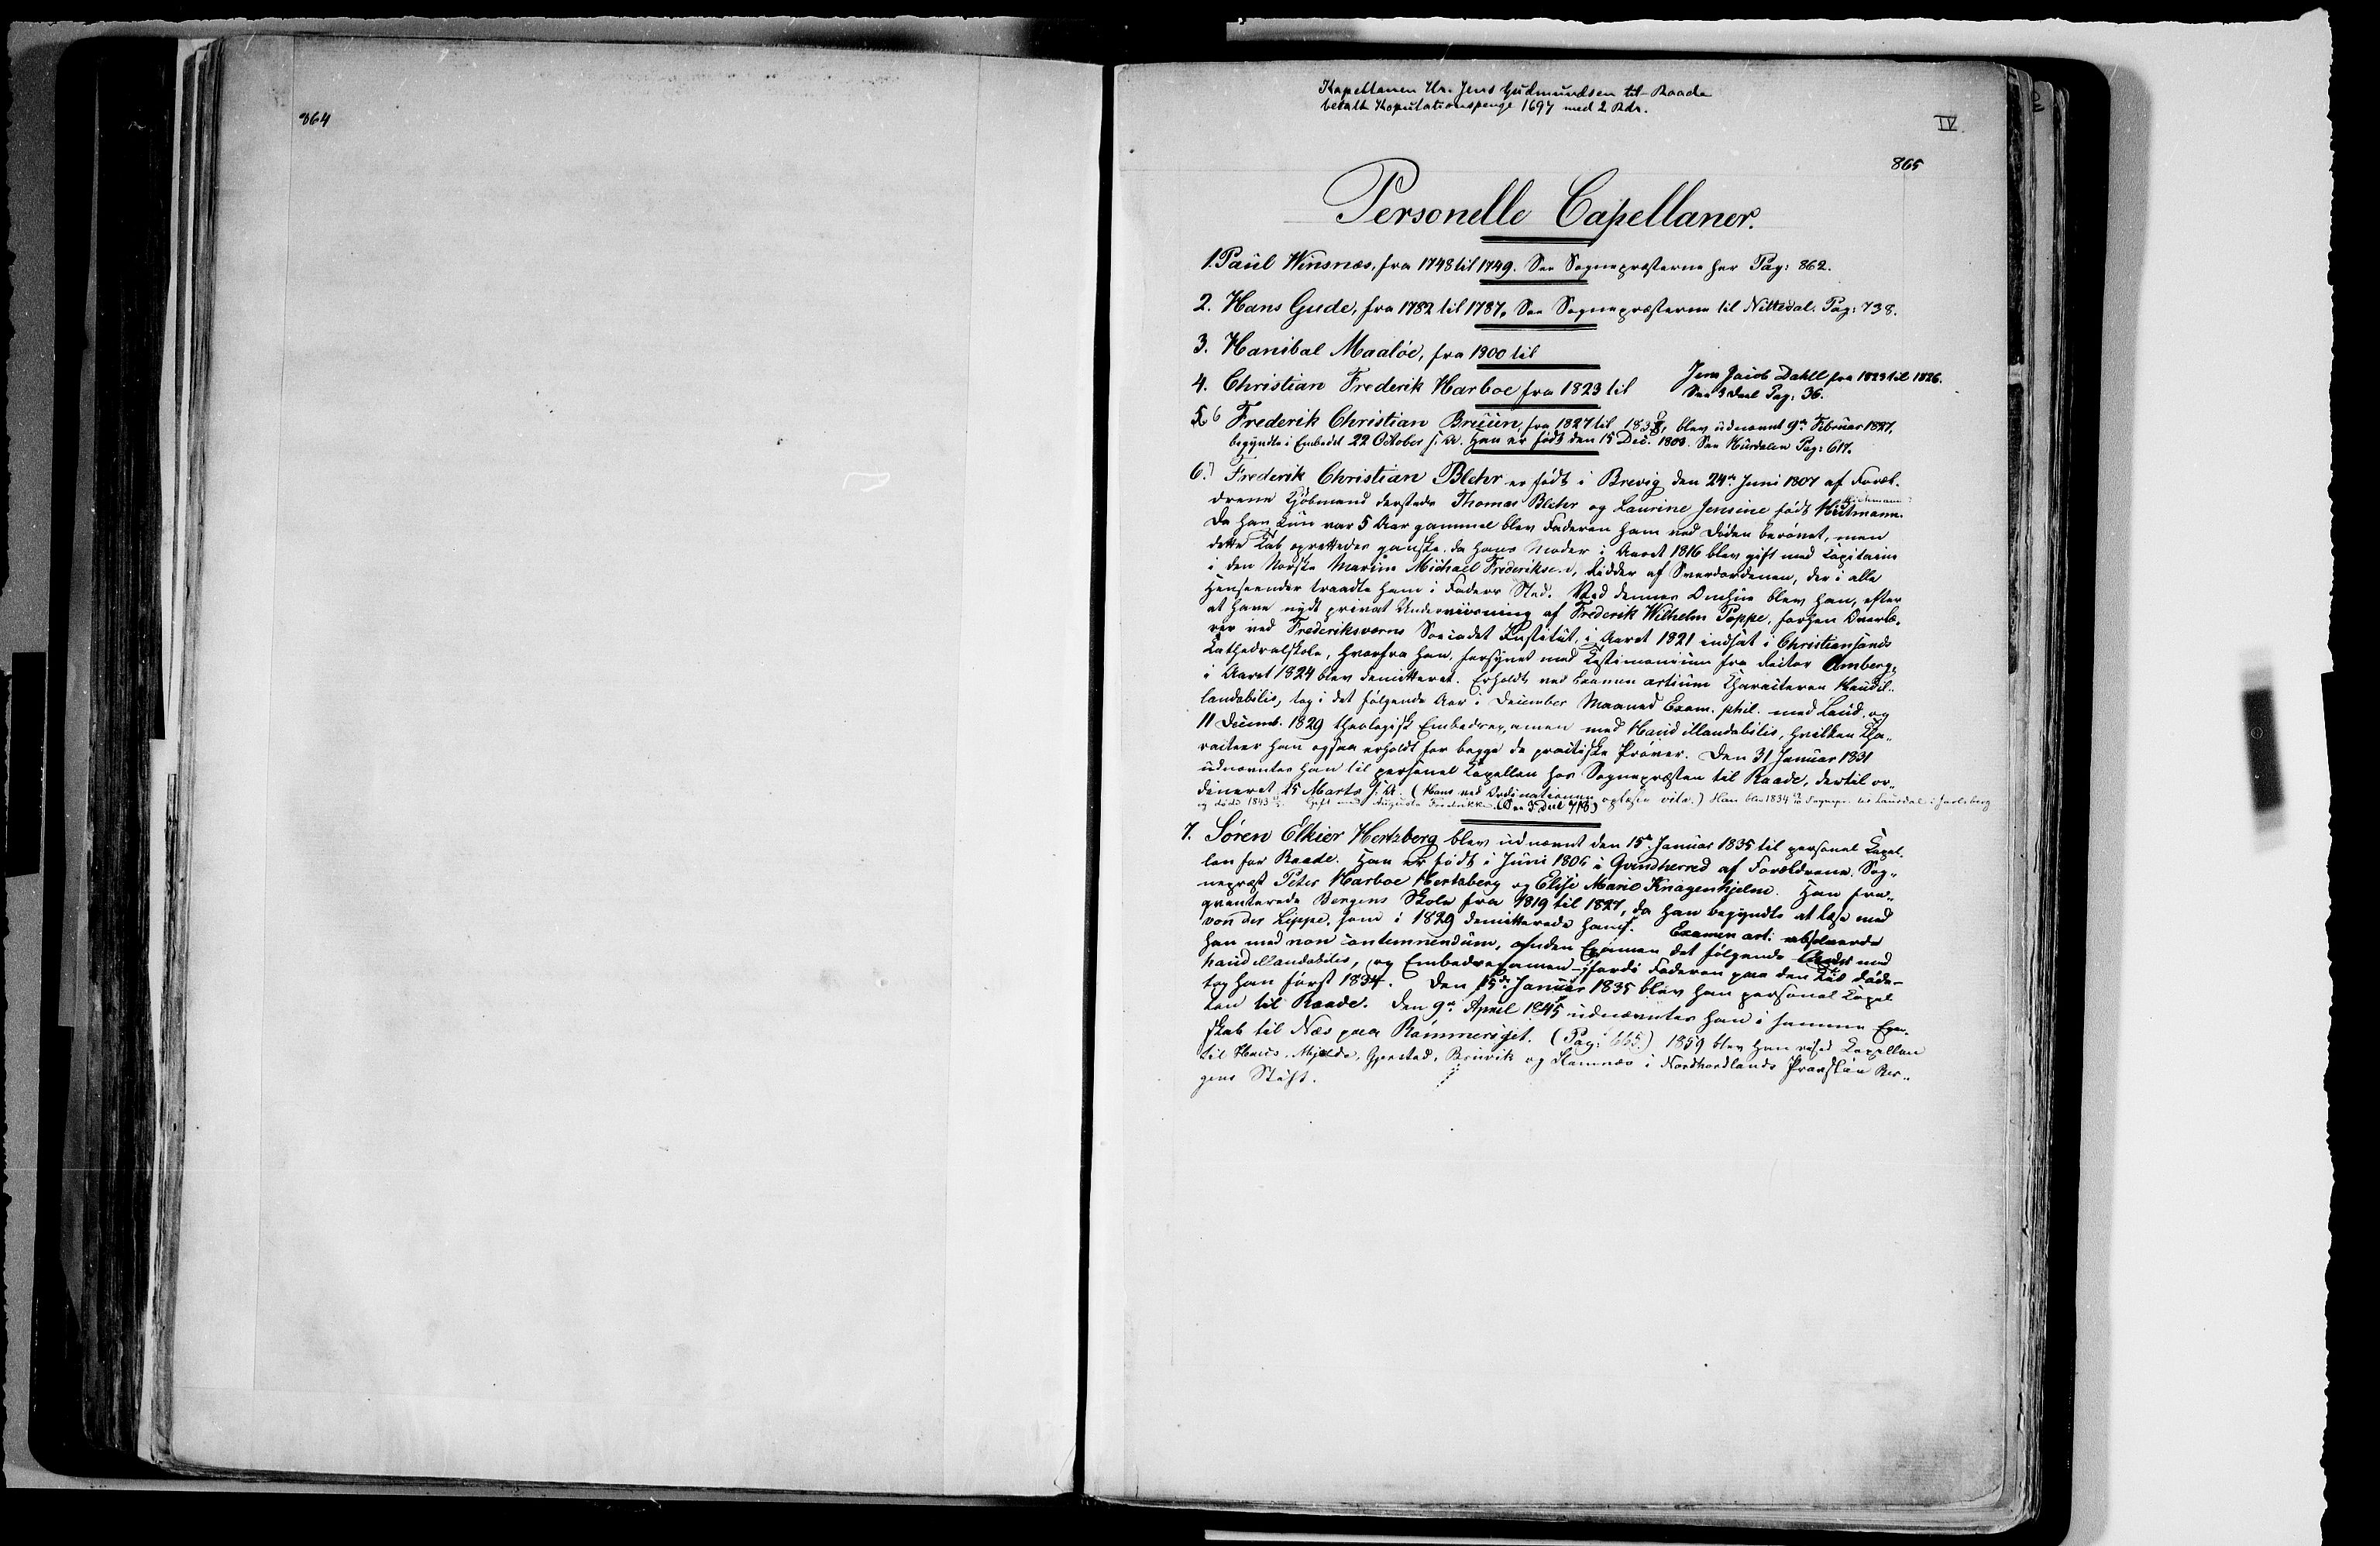 864
Kapellanen Hr. Jens Gudmundsen til Raade
betalt Kopulationspenge 1697 med 2 Rdr.
IV
865
Personelle Capellaner.
1. Paul Winsnæs, fra 1748 til 1749. See Sognepræsterne her Pag: 862.
2. Hans Gude, fra 1782 til 1787. See Sognepræsterne til Nittedal. Pag: 738.
3. Hanibal Maaløe, fra 1800 til
4. Christian Frederik Harboe fra 1823 til
Jens Jacob Dahll fra 1823 til 1826.
See 3 Deel Pag: 36.
5. 6 Frederik Christian Bruun, fra 1827 til 183, blev udnævnt 9de Februar 1827,
begyndte i Embedet 22 October s. A. Han er født den 15 Dec. 1803. See Hurdalen Pag: 617.
6. 7 Frederik Christian Blehr er født i Brevig den 24de Juni 1807 af Foræl-
drene Kjøbmand dersteds Thomas Blehr og Laurine Jensine født
Da han kun var 5 Aar gammel blev Faderen ham ved Døden berøvet, men
dette Tab oprettedes ganske, da hans Moder i Aaret 1816 blev gift med Capitain
i den Norske Marine Michael Frederiksen, Ridder af Sværdordenen, der i alle
Henseender traadte ham i Faders Sted. Ved dennes Omhue blev han, efter
at have nydt privat Underviisning af Frederik Wilhelm Poppe, forhen Overlæ-
rer ved Frederiksværns Søecadet Institut, i Aaret 1821 indsat i Christiansands
Cathedralskole, hvorfra han, forsynet med Testimonium fra Rector Amberg,
i Aaret 1824 blev demitteret. Erholdt ved Examen artium Characteren Haud il-
laudabilis, tog i det følgende Aar i December Maaned Exam. phil. med Laud. og
11 Decemb. 1829 theologisk Embedsexamen med Haud illaudabilis, hvilken Cha-
racteer han ogsaa erholdt for begge de practiske Prøver. Den 31 Januar 1831
udnævntes han til personel Capellan hos Sognepræsten til Raade, dertil or-
dineret 25 Marts s. A. (Hans ved Ordinationen oplæste vita.) Han blev 1834 Sognepr. til Laurdal i Jarlsberg
og døde 1843. Gift med Augusta Fredrikke. (See 3 Deel 718)
7. Søren Elkier Hertzberg blev udnævnt den 15de Januar 1835 til personel Capel-
lan for Raade. Han er født i Juni 1806 i Qvindherred af Forældrene Sog-
nepræst Peter Harboe Hertzberg og Elise Marie Knagenhjelm. Han fre-
qventerede Bergens Skole fra 1819 til 1827, da han begyndte at læse med
von der Lippe, som i 1829 demitterede ham. Examen art. absolverede
han med non contemnendum, anden Examen det følgende med
haud illaudabilis, og Embedsexamen fordi Faderen paa den Tid døde
tog han først 1834. Den 15de Januar 1835 blev han personel Capel
lan til Raade. Den 9de April 1845 udnævntes han i samme Egen-
skab til Næs paa Romeriget. (Pag: 665.) 1859 blev han resid. Capellan
til Haus, Mjelde, Gjerstad, Bruvik og Hamnæs i Nordhordlands Provstie Ber-
gens Stift.